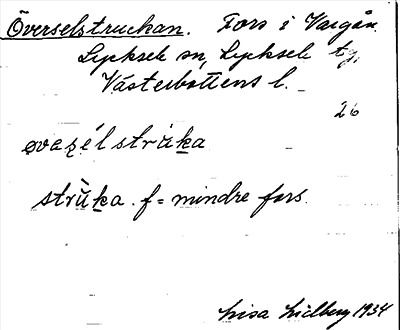 Överselstruckan. Fors i Vargån.
Lycksele sn, Lycksele tg,
Västerbottens l.
26
øvaṛél strùka
strùka. f = mindre fors.
Lisa Lidberg 1934